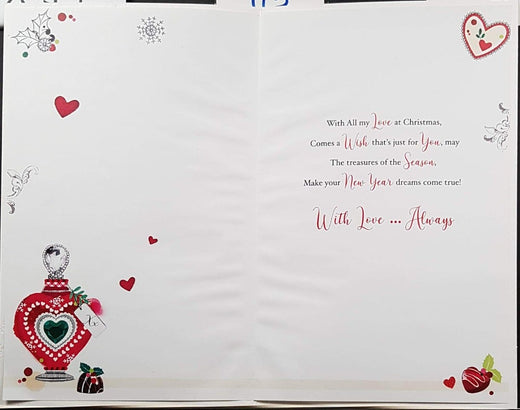 With All my Love at Christmas,
Comes a Wish that's just for You, may
The treasures of the Season,
Make your New Year dreams come true!
With Love ... Always